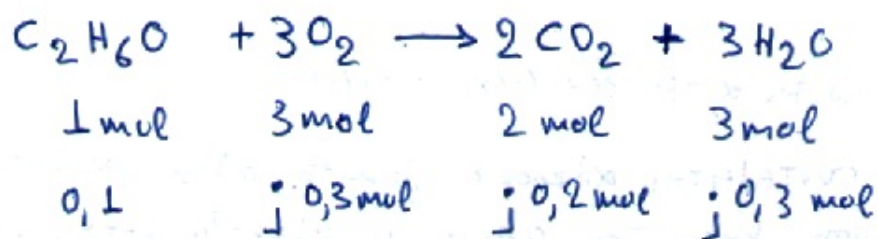 C₂H₆O + 3O₂ ⟶ 2CO₂ + 3H₂O
1mol 3mol 2 mol 3mol
0,1 ; 0,3mol ; 0,2mol ; 0,3 mol